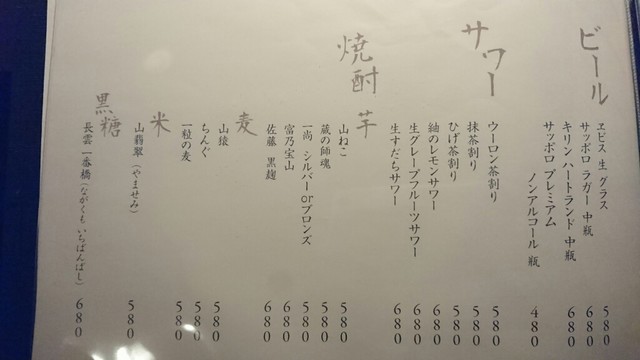 ビール
ヱビス 生 グラス 580
サッポロ ラガー 中瓶 680
キリン ハートランド 中瓶 680
サッポロ プレミアム
ノンアルコール 瓶 480
サワー
ウーロン茶割り 580
抹茶割り 580
ひげ茶割り 580
紬のレモンサワー 680
生グレープフルーツサワー 680
生すだちサワー 680
焼酎
芋
山ねこ 580
蔵の師魂 580
一尚 シルバーorブロンズ 580
富乃宝山 680
佐藤 黒麹 680
麦
山猿 580
ちんぐ 580
一粒の麦 580
米
山翡翠(やませみ) 580
黒糖
長雲 一番橋(ながくも いちばんばし) 680